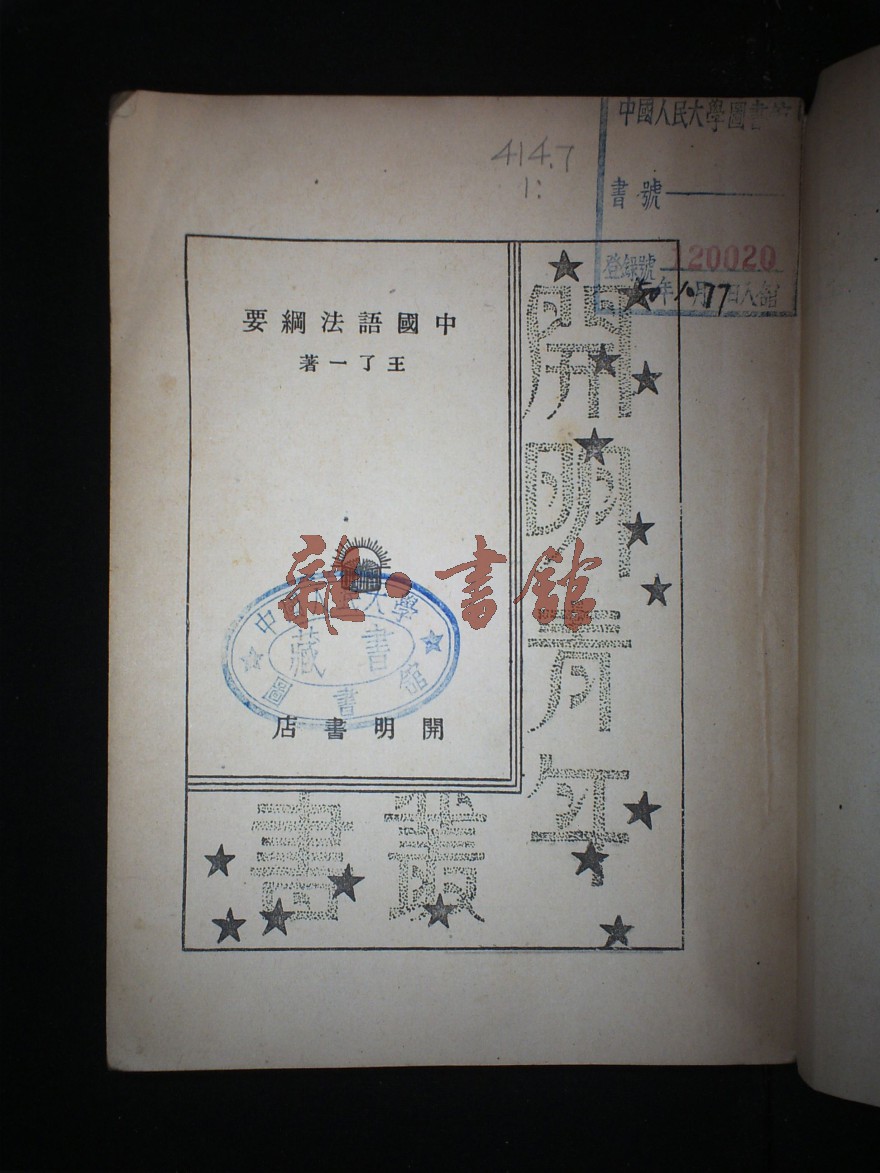 中國人民大學圖書館
414.7
1:
書號
登錄號 120020
年 月 日入館
中國語法綱要
王了一著
開明書店
開明青年
叢書
中國人民大學
圖書館
藏書
雜·書館